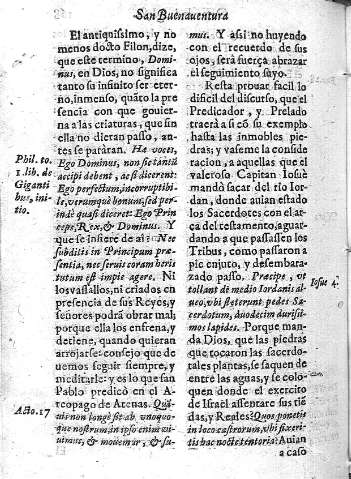 San Buenauentura
El antiquissimo, y no
menos docto Filon, dize,
que este termino, Domi-
nus, en Dios, no significa
tanto su infinito ser eter-
no, inmenso, quãto la pre-
sencia con que gouier-
na a las criaturas, que sin
ella no dieran passo, an-
tes se pararàn. Hæ voces,
Ego Dominus, non sic tantũ
accipi debent, ac si dicerent:
Ego perfectum, incorruptibi-
le, verumquè bonum, sed per-
indè quasi diceret: Ego Prin
ceps, Rex, & Dominus. Y
que se infiere de ai? Nec
subditis in Principum pre-
sentia, nec seruis coram heris
tutum est impiè agere. Ni
los vassallos, ni criados en
presencia de sus Reyes, y
señores podrà obrar mal;
porque ella los enfrena, y
detiene, quando quieran
arrojarse: consejo que de
uemos seguir siempre, y
meditarle: y es lo que san
Pablo predicò en el A-
reopago de Atenas. Quã-
uis non longè sit ab vnoquo-
que nostrum, in ipso enim vi-
uimus, & mouemur, & su-
Phil. to.
1. lib. de
Giganti
bus, ini-
tio.
Acto. 17
mus. Y assi no huyendo
con el recuerdo de sus
ojos, serà fuerça abrazar
el seguimiento suyo.
Resta prouar facil lo
dificil del discurso, que el
Predicador, y Prelado
traerà a si cõ su exemplo
hasta las inmobles pie-
dras; y vaseme la conside
racion, a aquellas que el
valeroso Capitan Iosuè
mandà sacar del rio Ior-
dan, donde auian estado
los Sacerdotes con el ar-
ca del testamento, aguar-
dando a que passassen los
Tribus, como passaron a
pie enjuto, y desembara-
zado passo. Præcipe, vt
tollant de medio Iordanis al-
ueo, vbi steterunt pedes Sa-
cerdotum, duodecim durissi-
mos lapides. Porque man-
da Dios, que las piedras
que tocaron las sacerdo-
tales plantas, se saquen de
entre las aguas, y se colo-
quen donde el exercito
de Israel assentare sus tiẽ
das, y Reales? Quos ponetis
in loco castrorum, vbi fixeri-
tis hac nocte tentoria: Auian
a caso
Iosue 4.